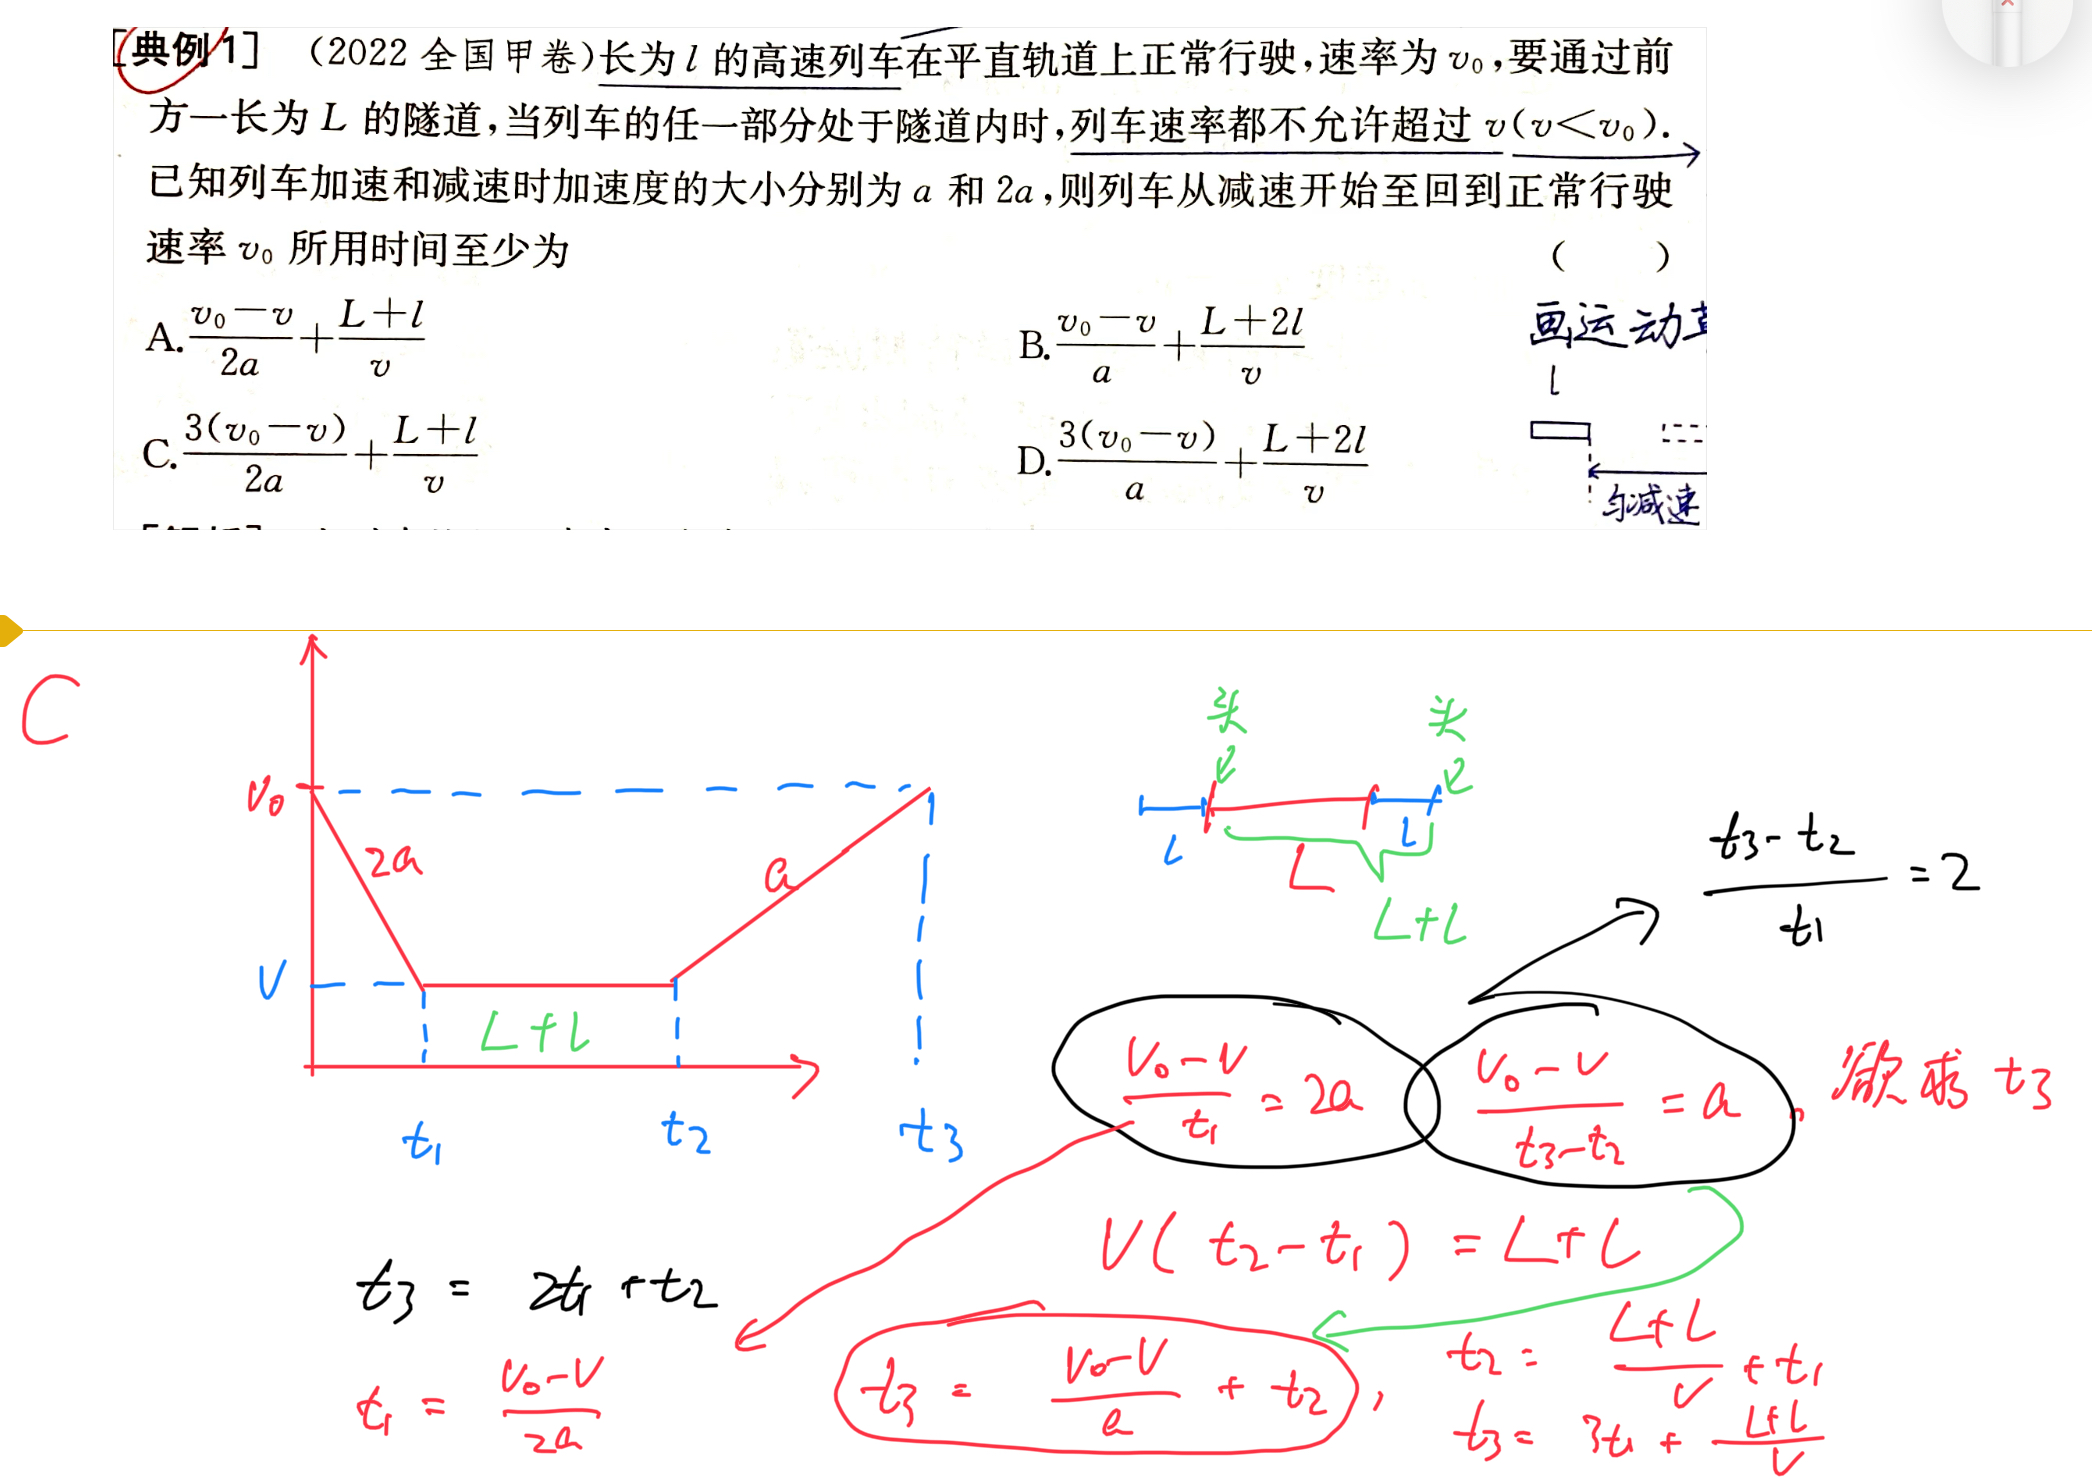 [典例1] (2022 全国甲卷)长为 l 的高速列车在平直轨道上正常行驶,速率为 v₀,要通过前
方一长为 L 的隧道,当列车的任一部分处于隧道内时,列车速率都不允许超过 v(v<v₀).
已知列车加速和减速时加速度的大小分别为 a 和 2a,则列车从减速开始至回到正常行驶
速率 v₀ 所用时间至少为 ( )
A. (v₀-v)/2a + (L+l)/v
B. (v₀-v)/a + (L+2l)/v
C. 3(v₀-v)/2a + (L+l)/v
D. 3(v₀-v)/a + (L+2l)/v
画运动
l
匀减速
C
头 头
v₀
2a
a
l L l
L+l
(t3-t2)/t1 = 2
V
L+l
t1 t2 t3
(V₀-V)/t1 = 2a
(V₀-V)/(t3-t2) = a, 欲求 t3
V(t2-t1) = L+l
t3 = 2t1+t2
t1 = (V₀-V)/2a
t3 = (V₀-V)/a + t2,
t2 = (L+l)/V + t1
t3 = 3t1 + (L+l)/V